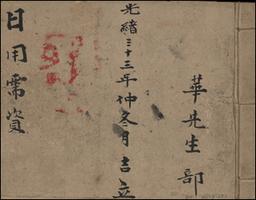 華先生部
光緒三十三年仲冬月吉立
日用需資